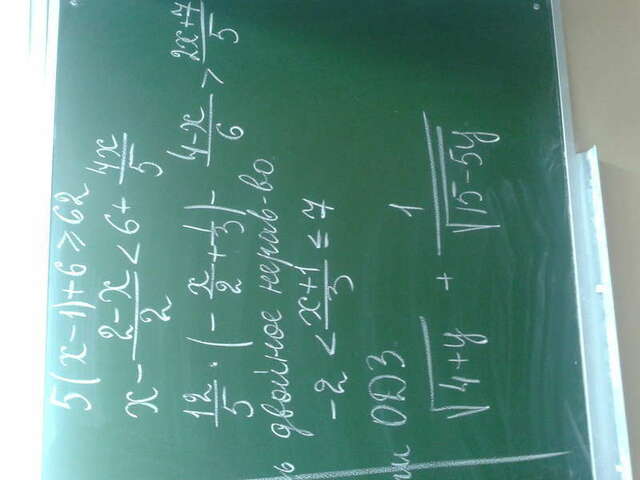 5(x-1)+6 ≥ 62
x - \frac{2-x}{2} < 6 + \frac{4x}{5}
\frac{12}{5} · (-\frac{x}{2} + \frac{1}{3}) - \frac{4-x}{6} > \frac{2x+7}{5}
ь двойное нерав-во
-2 < \frac{x+1}{3} ≤ 7
ти ОДЗ
\sqrt{4+y} + \frac{1}{\sqrt{15-5y}}